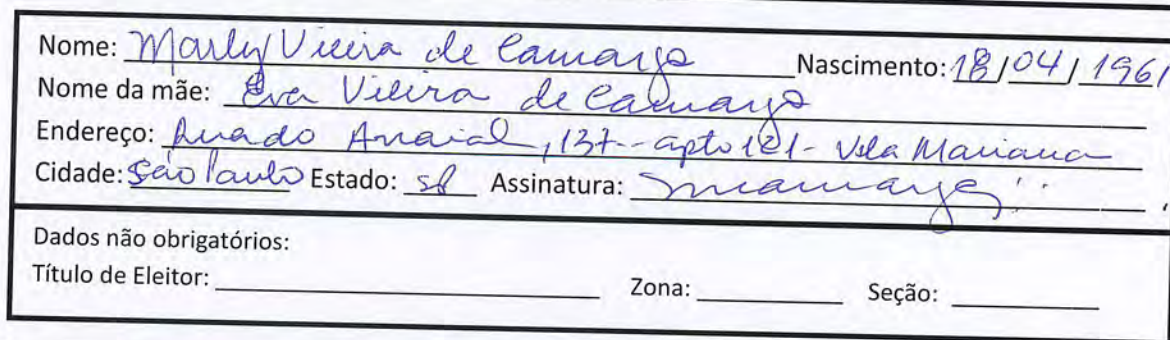 Nome: Marly Vieira de Camargo Nascimento: 18/04/1961
Nome da mãe: Eva Vieira de Camargo
Endereço: Rua do Arraial, 137 - apto 121 - Vila Mariana
Cidade: São Paulo Estado: SP Assinatura:
Dados não obrigatórios:
Título de Eleitor: Zona: Seção: